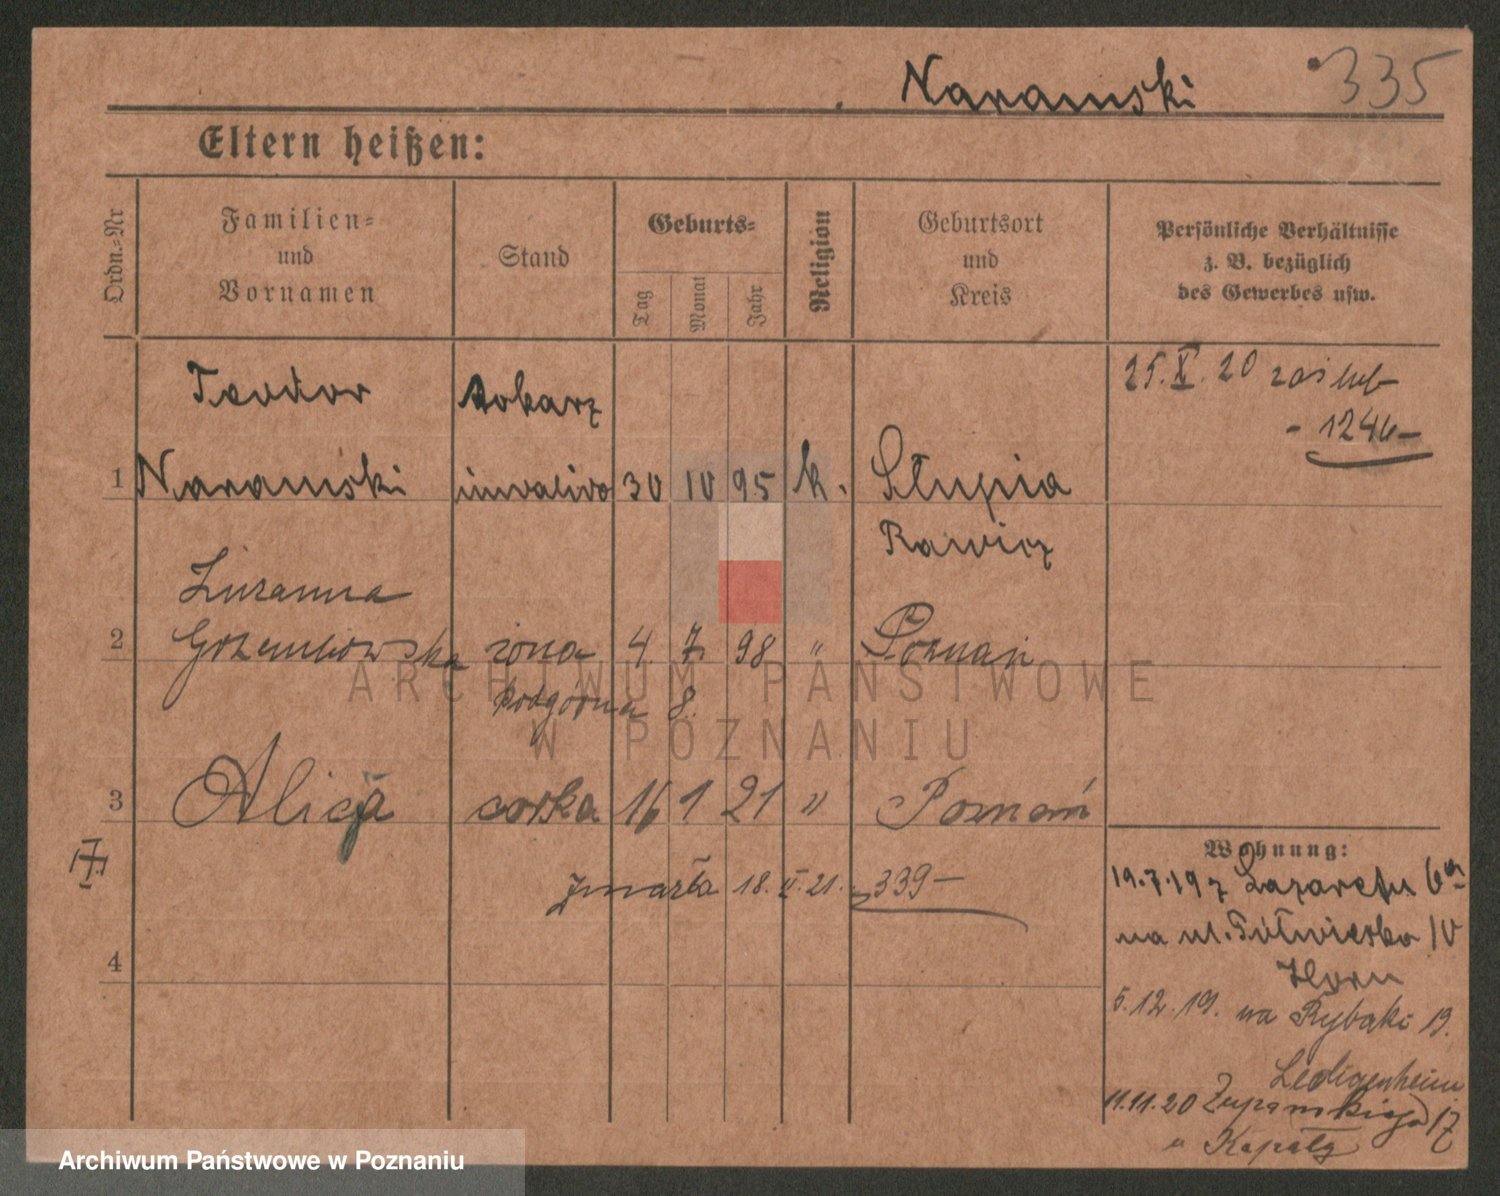 Naramski 335
Eltern heißen:
Ordn.=Nr
Familien=
und
Vornamen
Stand
Geburts=
Tag
Monat
Jahr
Religion
Geburtsort
und
Kreis
Persönliche Verhältnisse
z. B. bezüglich
des Gewerbes usw.
Teodor tokarz 25.X.20 zaślub
- 1246 -
1 Naramski inwalido 30 10 95 k. Słupia
Rawicz
Zuzanna
2 żona 4 7 98 " Poznań
Podgórna 8.
3 Alicja corka 16 1 21 " Poznań
zmarła 18. II. 21. 339 -
4
Wohnung:
19.7.19 z Lazaretu
na ul.
Horn
5.12.19. na Rybaki 19.
Ledigenheim
11.11.20 Zupanskiego 17
u
ARCHIWUM PAŃSTWOWE
W POZNANIU
Archiwum Państwowe w Poznaniu